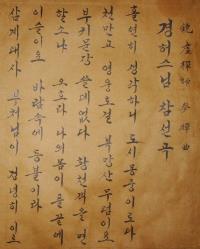 鏡虛禪師 參禪曲
경허스님 참선곡
홀연히 생각하니 도시몽중이로다
천만고 영웅호걸 북망산 무덤이요
부귀문장 쓸데없다 황천객을 면
할소냐 오호라 나의 몸이 풀끝에
이슬이요 바람속에 등불이라
삼계대사 부처님이 정녕히 이르